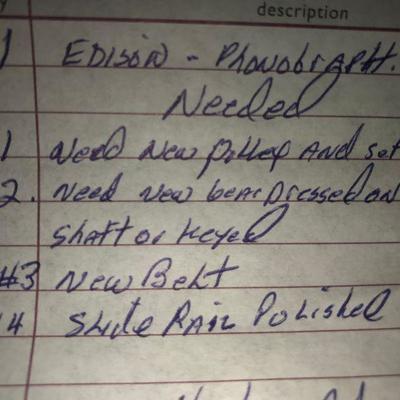 description
1 EDISON - PhonoGrAPH.
Needed
1 Need New pulley AND set
2. Need New gear Dressed on
Shaft or Keyed
#3 New Belt
4 Slide Rail Polished